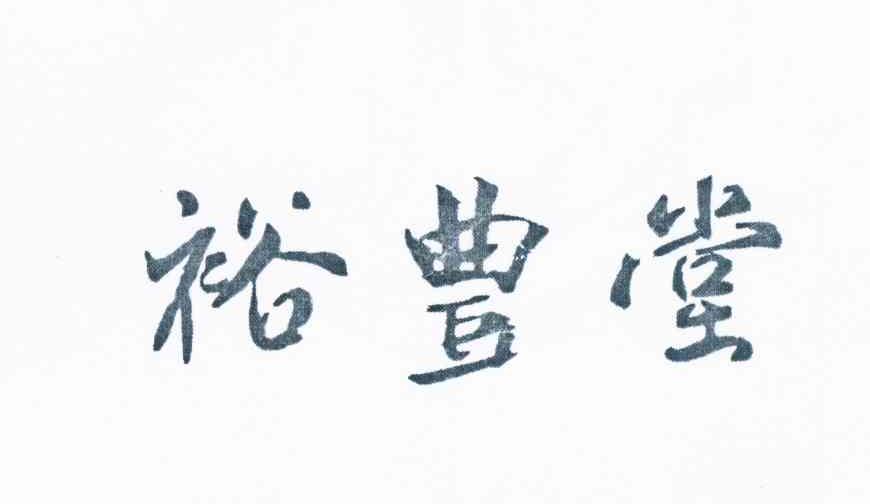 裕豊堂